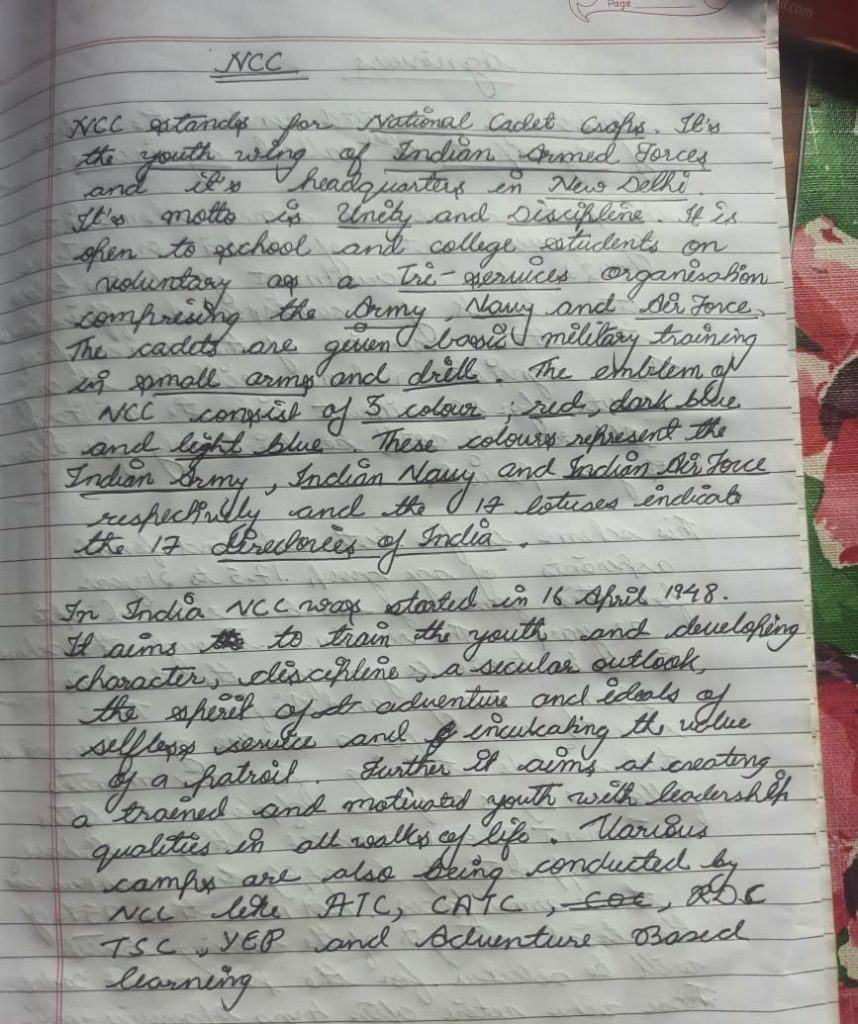 Page
NCC
NCC stands for National Cadet Crops. It's
the youth wing of Indian Armed Forces
and it's headquarters in New Delhi.
It's motto is Unity and Discipline. It is
open to school and college students on
voluntary as a Tri-services organisation
comprising the Army, Navy and Air Force,
The cadets are given basic military training
in small arms and drill. The emblem of
NCC consist of 3 colour; red, dark blue
and light blue. These colours represent the
Indian Army, Indian Navy and Indian Air Force
respectively and the 17 lotuses indicate
the 17 directories of India.
In India NCC was started in 16 April 1948.
It aims to train the youth and developing
character, discipline, a secular outlook,
the spirit of adventure and ideals of
selfless service and inculcating the value
of a patroit. Further it aims at creating
a trained and motivated youth with leadership
qualities in all walks of life. Various
camps are also being conducted by
NCC like ATC, CATC, COC, RDC
TSC, YEP and Adventure Based
learning